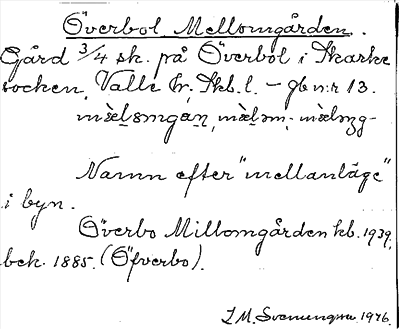 Överbol Mellomgården.
Gård 3/4 sk. på Överbol i Skarke
socken, Valle hr. Skb. l. – gb n:r 13.
Namn efter "mellanläge"
i byn.
Överbo Millomgården kb. 1939,
bck. 1885. (Öfverbo).
I.M. Svenungsson 1976.